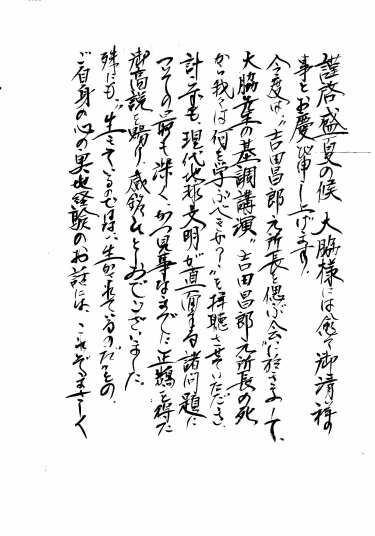 謹啓 盛夏の候 大脇様には愈々御清祥の
事とお慶び申し上げます。
今度は、"吉田昌郎元所長を偲ぶ会"に於きまして、
大脇先生の基調講演、"吉田昌郎元所長の死
から我々は何を学ぶべきか？"を拝聴させていただき、
計らずも、現代地球文明が直面する諸問題に
ついての最も深く、かつ見事なまでに正鵠を得た
御高説を賜り、感銘ひとしおでございました。
殊にも、"生きているのではない、生かされているのだ"との、
ご自身の心の実地経験のお話には、これぞまさしく